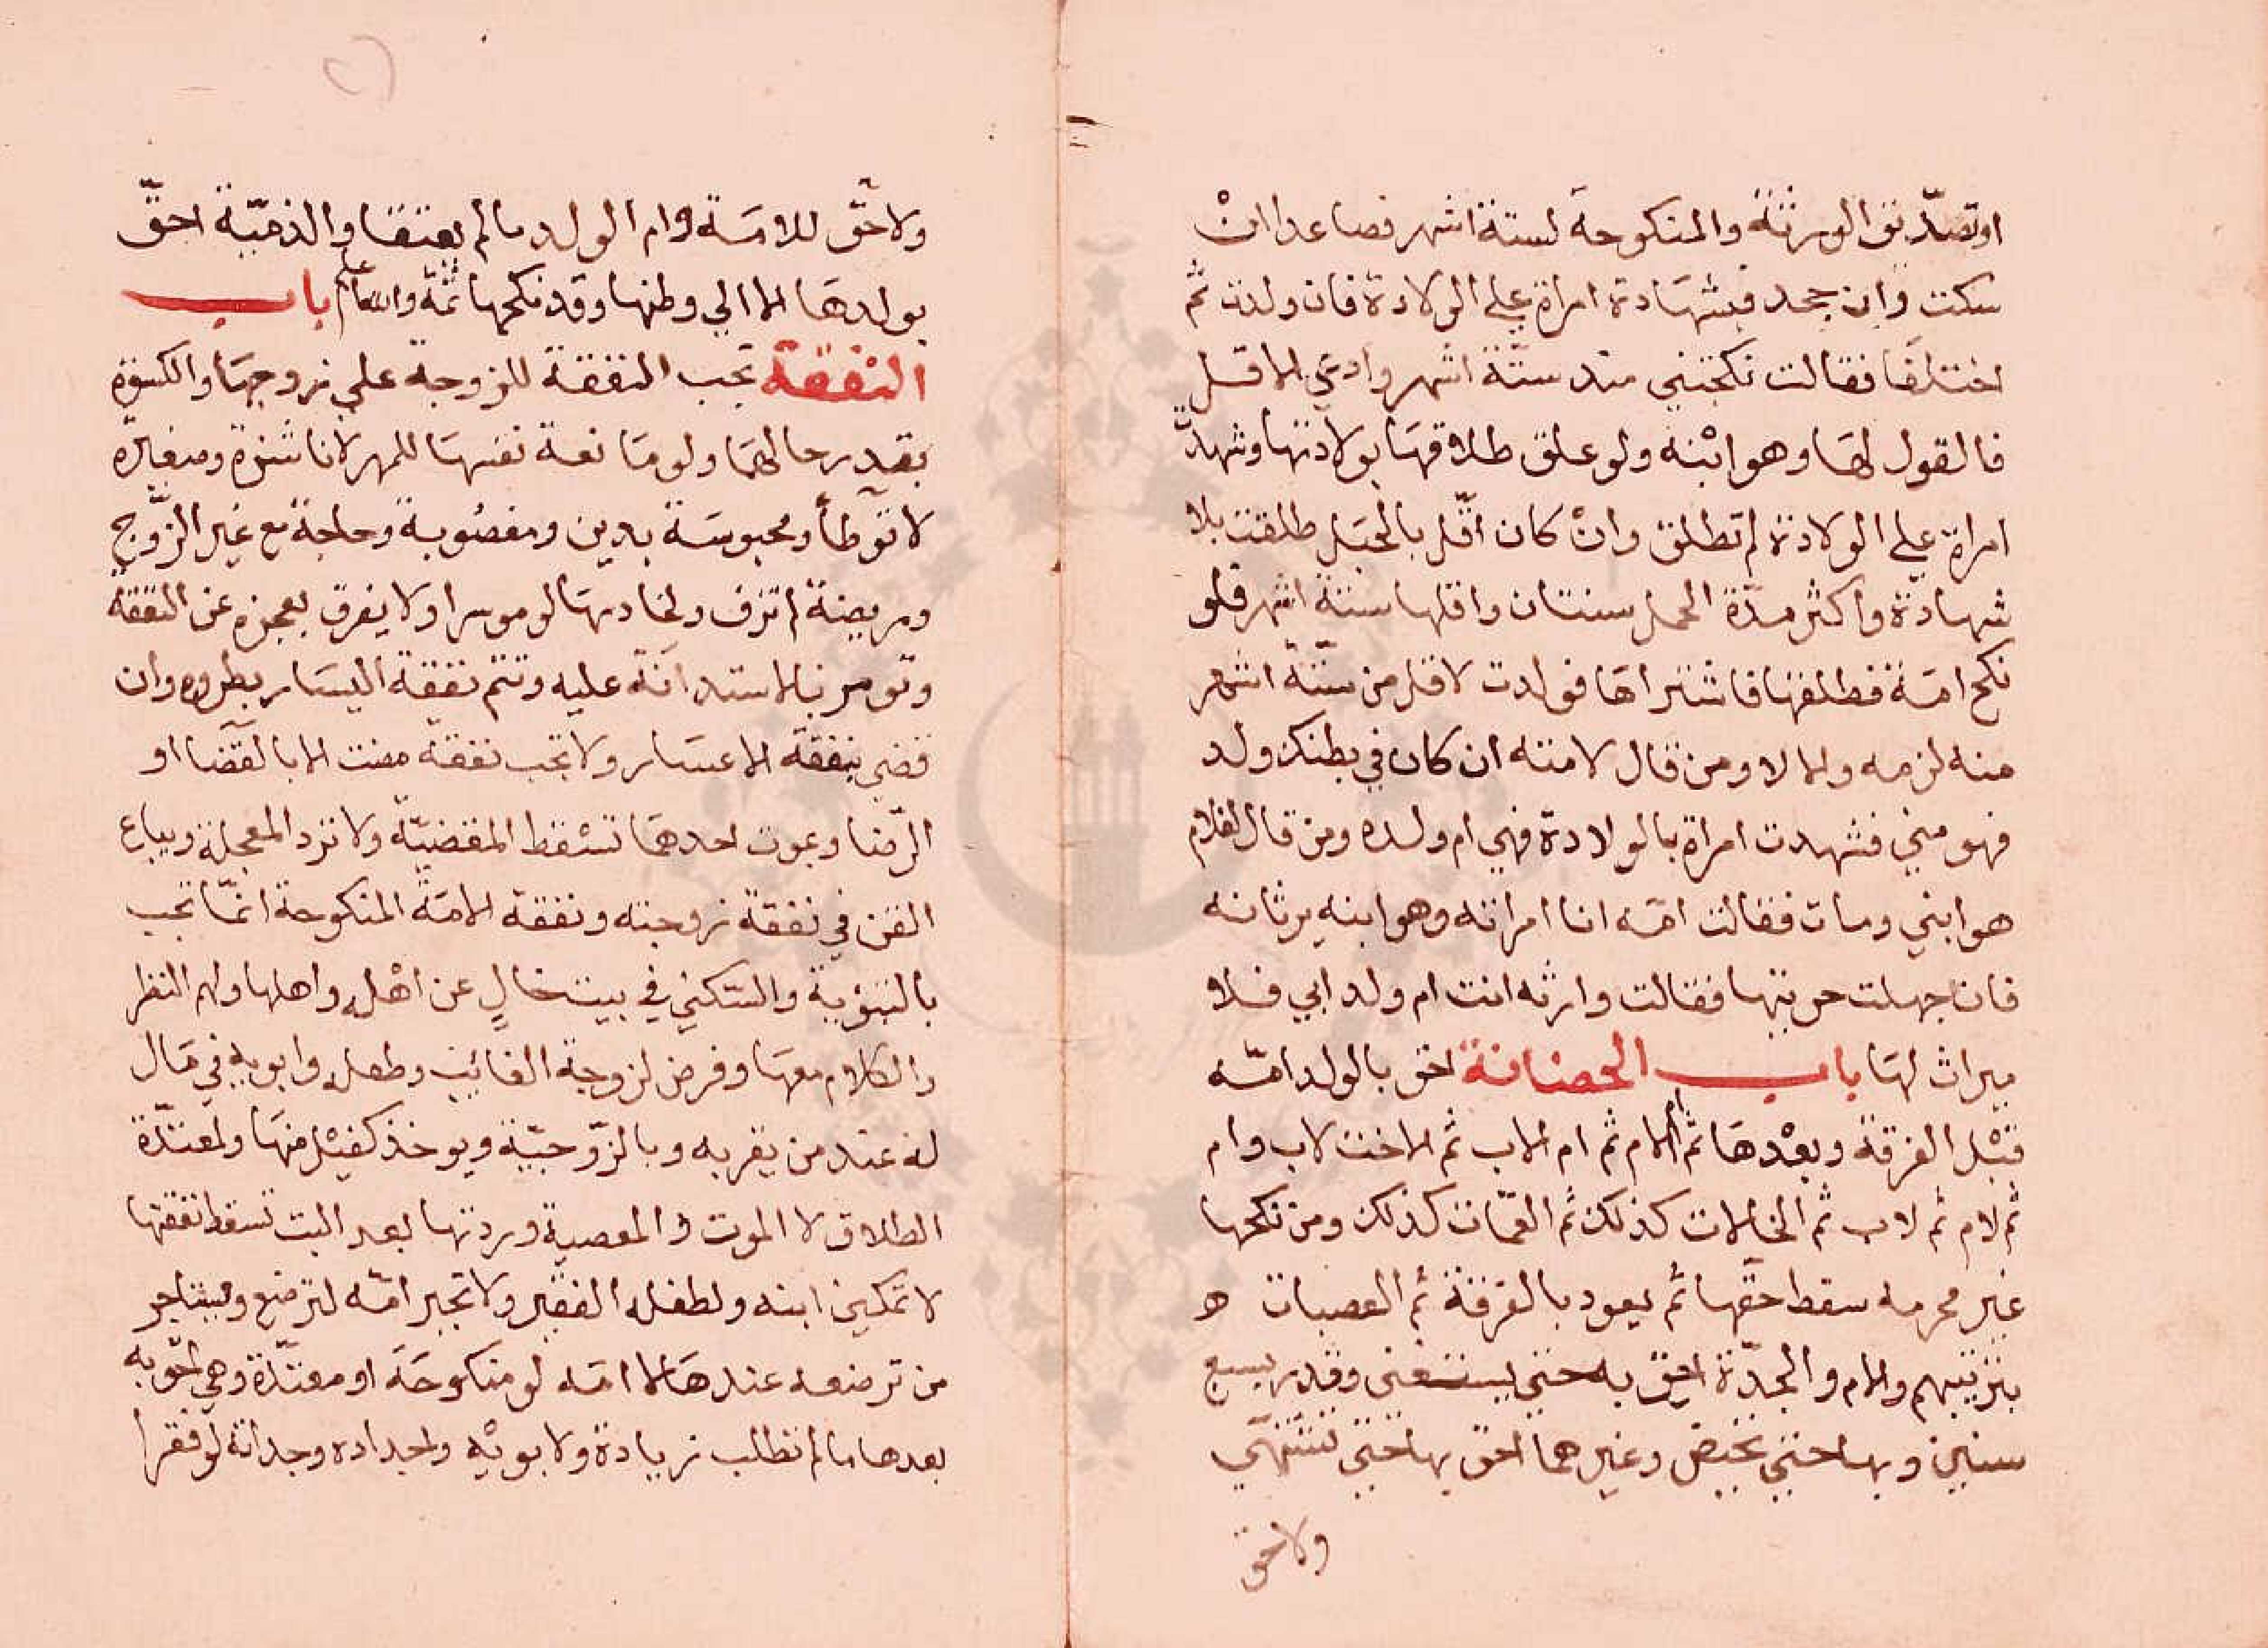 او تصديق الورثة والمنكوحة لستة اشهر فصاعدا انْ
سكت وان جحد فبشهادة امراة علي الولادة فان ولدت ثم
اختلفا فقالت نكحتني منذ ستّة اشهر وادعي الاقل
فالقول لها وهو ابْنه ولو علق طلاقها بولادتها وشهدتّ
امراة علي الولادة لم تطلق وانْ كان اقّر بالحبَل طلقت بلا
شهادة واكثر مدّة الحمل سنتان واقلها ستة اشهر فلو
نكح امة فطلقها فاشتراها فولدت لاقل من ستّة اشهر
منه لزمه والا لا ومن قال لامته ان كان في بطنك ولد
فهو مني فشهدت امراة بالولادة فهي ام ولده ومن قال لغلام
هو ابني ومات فقالت امّه انا امراته وهو ابنه يرثانه
فان جهلت حريتها فقالت وارثه انت ام ولد ابي فلا
ميراث لها باب الحضانة احق بالولد امّه
قبْل الفرقة وبعْدها ثم ام الام ثم ام الاب ثم الاخت لاب وام
ثم لام ثم لاب ثم الخالات كذلك ثم العمّات كذلك ومن نكحها
غير محرمه سقط حقّها ثم يعود بالفرقة ثم العصبات ه
بترتيبهم والام والجدّة احق به حتي يستغني وقدر بسبع
سنين وبها حتي تحيض وغيرهما احق بها حتي تشتهّي
ولا حق
ولا حقّ للامة وام الولد مالم يعتقا والذميّة احقّ
بولدها الا الي وطنها وقد نكحها ثمّة والله اعلم باب
النفقة تجب النفقة للزوجة علي زوجها والكسوة
بقدر حالهما ولو مانعة نفسها للمهر لا ناشزة وصغيرة
لا توطأ ومحبوسة بدين ومغصوبة وحاجة مع غير الزّوج
ومريضة لم تزف ولخادمها لو موسرا ولا يفرق بعجزه عن النفقة
وتومر بالاستدانة عليه وتتم نفقة اليسار بطروه وان
قضي بنفقة الاعسار ولا تجب نفقة مضت الا بالقضا او
الرّضا وبموت احدهما تسْقط المقضيّة ولا ترد المعجلة ويباع
القن في نفقة زوجته ونفقة الامة المنكوحة انمّا تجب
بالتبوّية والسّكني في بيت خالٍ عن اهْله واهلها ولهم النظر
والكلام معها وفرض لزوجة الغايب وطفله وابويه في مال
له عند من يقر به وبالزّوجيّة ويوخذ كفيْل منها ولمعتدّة
الطلاق لا الموت والمعصية وردتها بعد البت تسقط نفقتها
لا تمكين ابنه ولطفله الفقير ولا تجبر امّه لترضع ويستاجر
من ترضعه عندها لا امّه لو منكوحة او معتدّة وهي احّق به
بعدها مالم تطلب زيادة ولابويْه واجداده وجداته لو فقرا